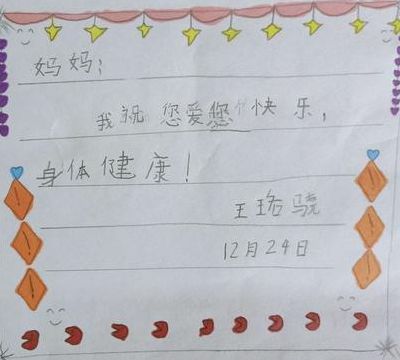 妈妈；
我祝您爱您快乐，
身体健康！
王珞骁
12月24日